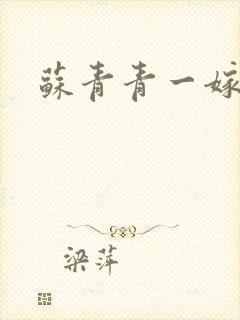 蘇青青一嫁
梁萍